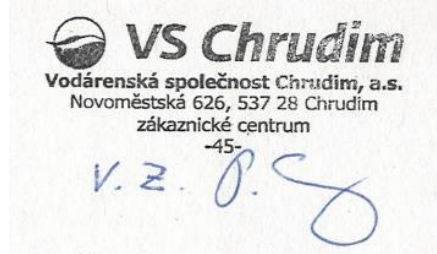 VS Chrudim
Vodárenská společnost Chrudim, a.s.
Novoměstská 626, 537 28 Chrudim
zákaznické centrum
-45-
V. z.